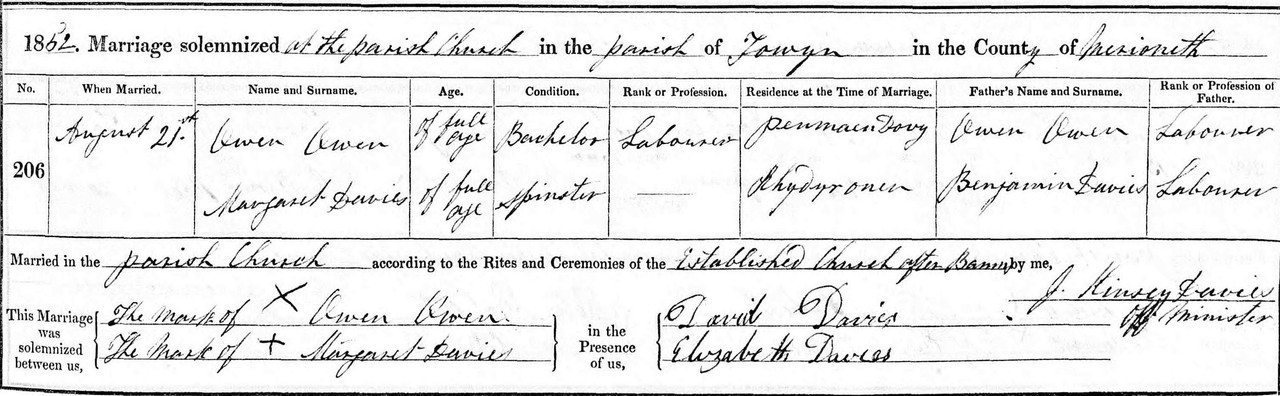 1852. Marriage solemnized at the parish Church in the parish of Towyn in the County of Merioneth
No. When Married. Name and Surname. Age. Condition. Rank or Profession. Residence at the Time of Marriage. Father's Name and Surname. Rank or Profession of Father.
206 August 21.st Owen Owen of full age Bachelor Labourer Penmaen Dovy Owen Owen Labourer
Margaret Davies of full age Spinster —— Rhydyronen Benjamin Davies Labourer
Married in the parish Church according to the Rites and Ceremonies of the Established Church after Banns by me,
J. Kinsey Davies
Offg Minister
This Marriage was solemnized between us,
The Mark of X Owen Owen
The Mark of + Margaret Davies
in the Presence of us,
David Davies
Elizabeth Davies